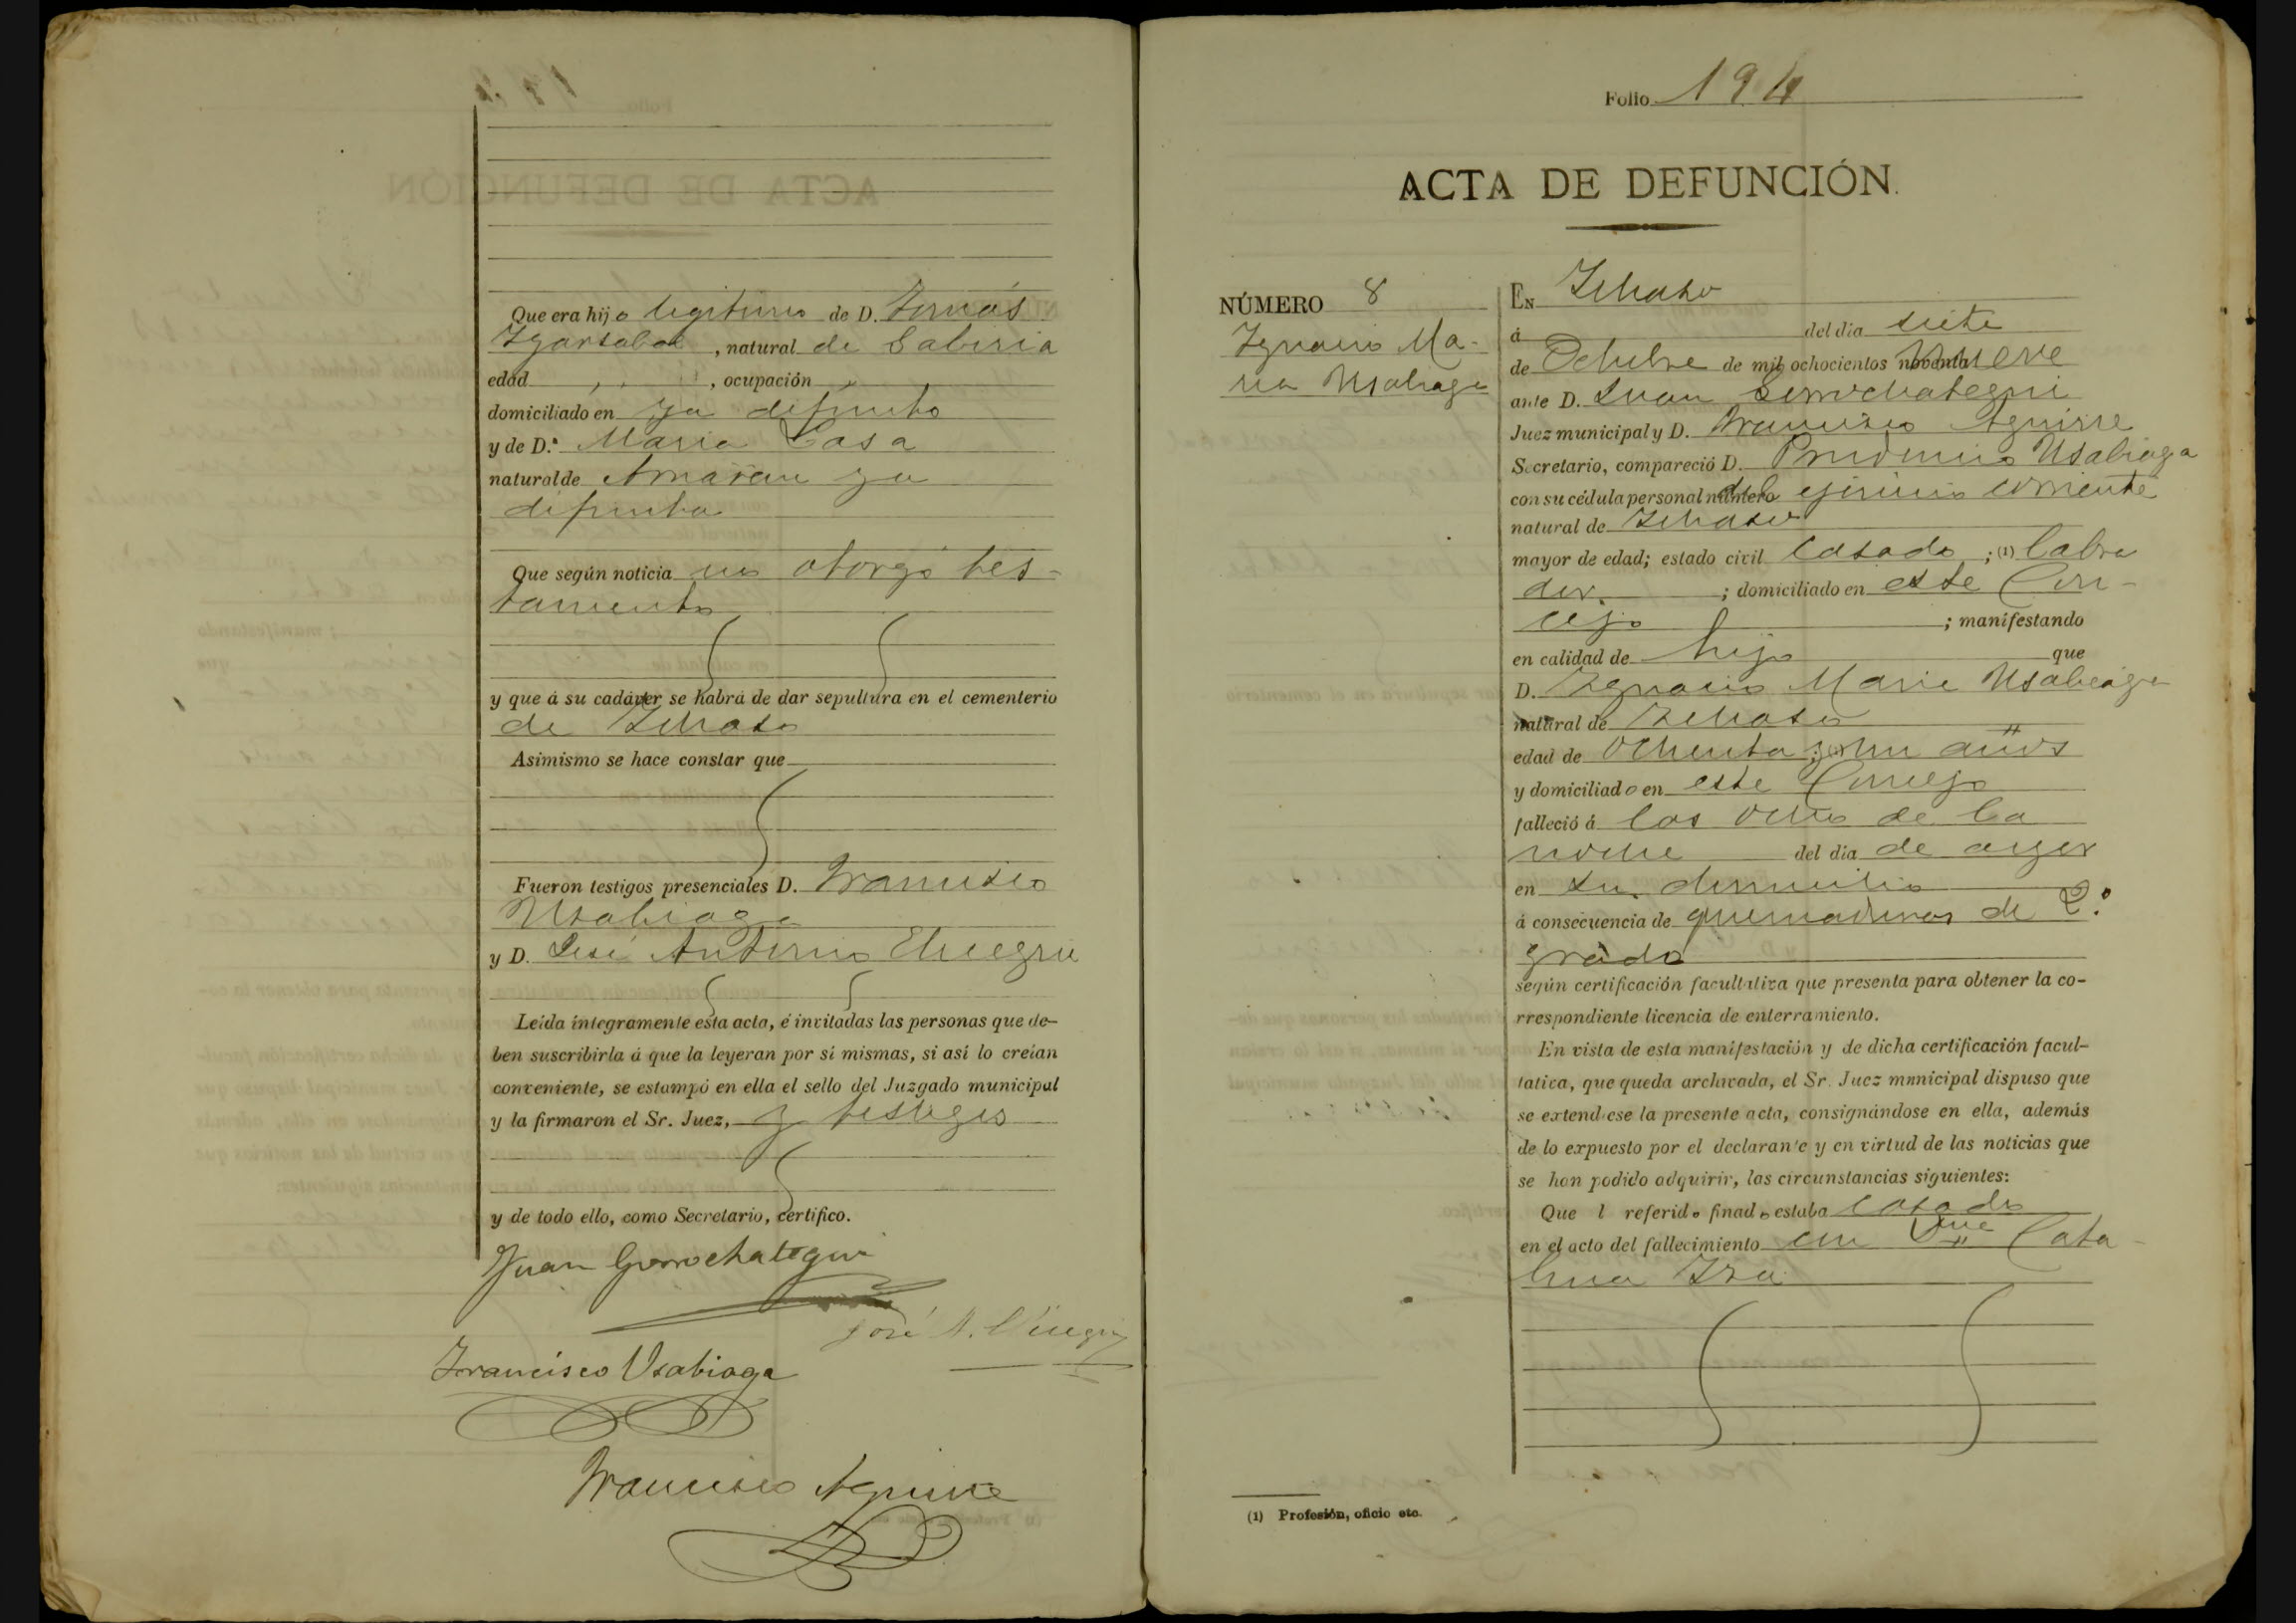 Que era hijo legitimo de D. Tomás
Ygarzabal, natural de Gabiria
edad , , , ocupación "
domiciliado en ya difunto
y de D.ª Maria Lasa
natural de Astigarreta ya
difunta
Que según noticia no otorgó tes-
tamento
y que á su cadáver se habrá de dar sepultura en el cementerio
de Ichaso
Asimismo se hace constar que
Fueron testigos presenciales D. Francisco
Usabiaga
y D. José Antonio
Leída íntegramente esta acta, é invitadas las personas que de-
ben suscribirla á que la leyeran por sí mismas, si así lo creían
conveniente, se estampó en ella el sello del Juzgado municipal
y la firmaron el Sr. Juez, y testigos
y de todo ello, como Secretario, certifico.
Juan Gorrochategui
José A.
Francisco Usabiaga
Francisco Aguirre
Folio 194
ACTA DE DEFUNCIÓN.
NÚMERO 8
Ygnacio Ma-
ria Usabiaga
En Ichaso
á del dia siete
de Octubre de mil ochocientos noventa nueve
ante D. Juan Gorrochategui
Juez municipal y D. Francisco Aguirre
Secretario, compareció D. Prudencio Usabiaga
con su cédula personal número del ejercicio corriente
natural de Ichaso
mayor de edad; estado civil casado ; (1) labra
dor. ; domiciliado en este Con-
cejo ; manifestando
en calidad de hijo que
D. Ygnacio Maria Usabiaga
natural de Ichaso
edad de ochenta y un años
y domiciliado en este Concejo
falleció á las ocho de la
noche del dia de ayer
en su domicilio
á consecuencia de quemaduras de 2.º
grado
según certificación facultativa que presenta para obtener la co-
rrespondiente licencia de enterramiento.
En vista de esta manifestación y de dicha certificación facul-
tativa, que queda archivada, el Sr. Juez municipal dispuso que
se extendiese la presente acta, consignándose en ella, además
de lo expuesto por el declarante y en virtud de las noticias que
se han podido adquirir, las circunstancias siguientes:
Que l referido finado estaba casado
en el acto del fallecimiento con Cata-
lina
(1) Profesión, oficio etc.